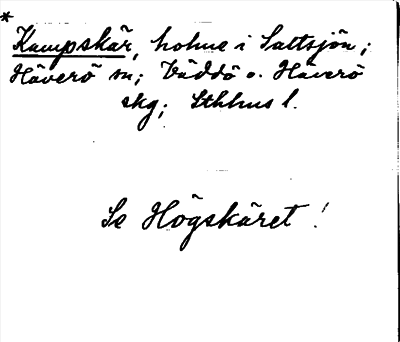 *
Kampskär, holme i Saltsjön;
Häverö sn; Väddö o. Häverö
skg; Sthlms l.
Se Högskäret!